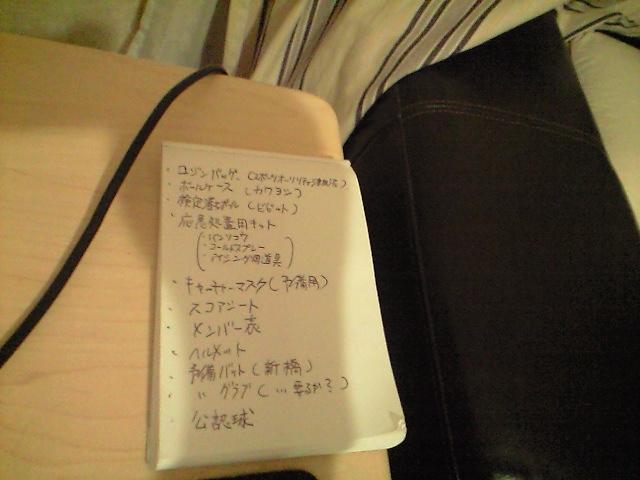 ・ロジンバッグ (スポーツオーソリティ
・ボールケース (カワヨシ)
・検定落ちボール (ビビット)
・応急処置用キット
・バンソコウ
・コールドスプレー
・アイシング用道具
・キャッチャーマスク (予備用)
・スコアシート
・メンバー表
・ヘルメット
・予備バット (新橋)
・〃 グラブ (… 要るか?)
・公認球